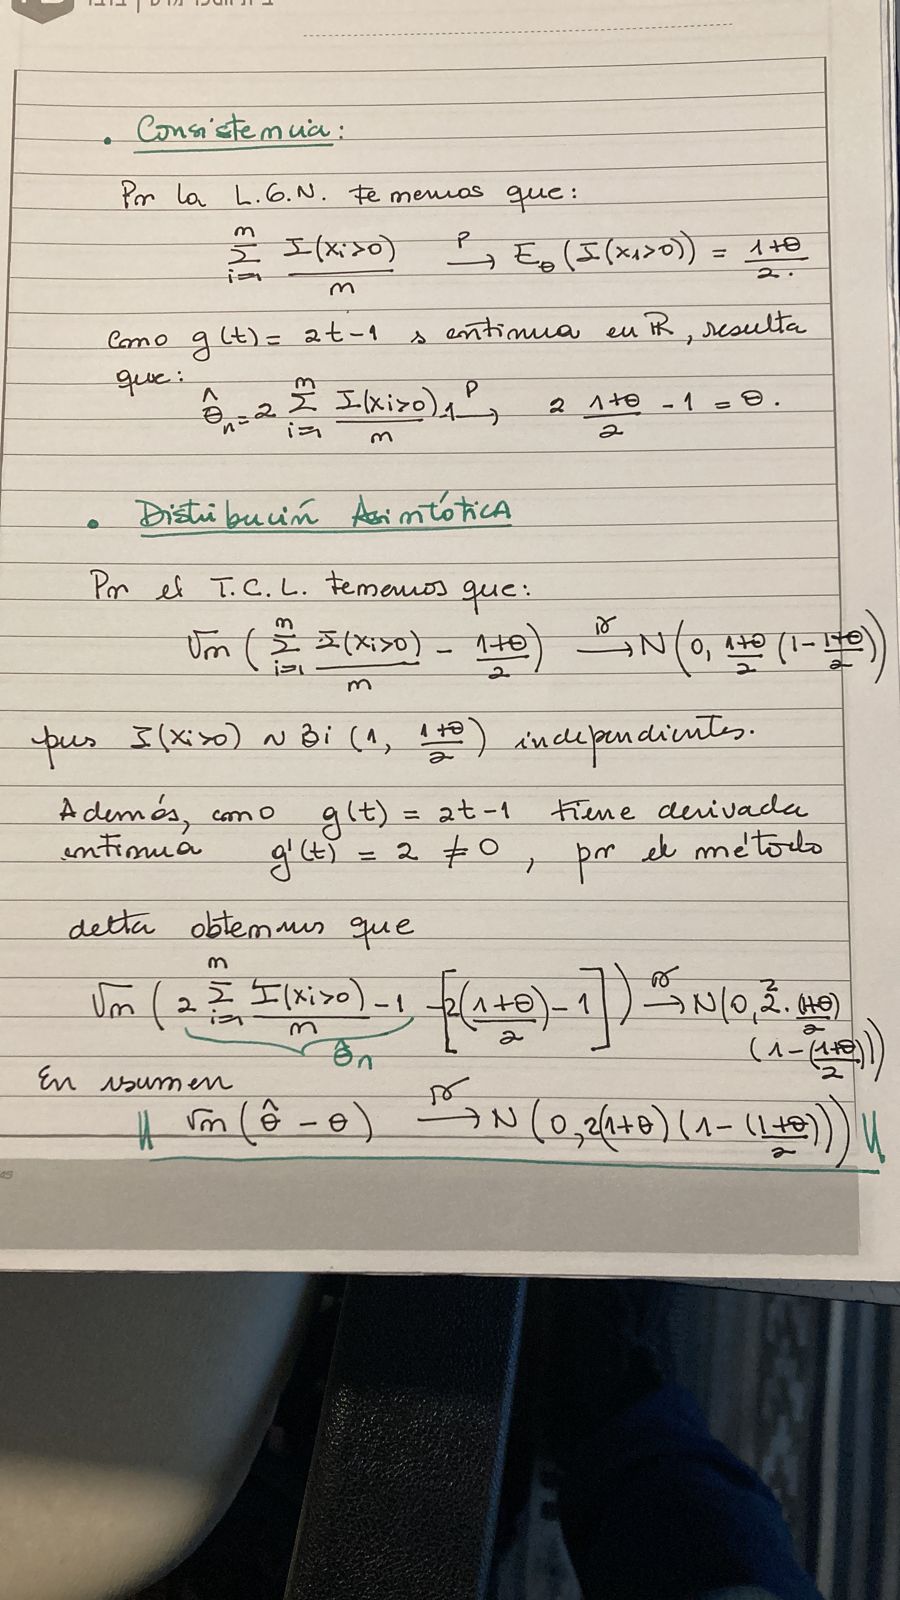 • Consistencia:
Por la L.G.N. tenemos que:
$\sum_{i=1}^{n} \frac{I(x_i>0)}{n} \xrightarrow{P} E_\theta(I(x_1>0)) = \frac{1+\theta}{2}.$
como g(t) = 2t-1 s continua en ℝ, resulta
que:
$\hat{\theta}_n = 2 \sum_{i=1}^{n} \frac{I(x_i>0)}{n} - 1 \xrightarrow{P} 2 \frac{1+\theta}{2} - 1 = \theta.$
• Distribución Asintótica
Por el T.C.L. tenemos que:
$\sqrt{n} \left( \sum_{i=1}^{n} \frac{I(x_i>0)}{n} - \frac{1+\theta}{2} \right) \xrightarrow{D} N\left(0, \frac{1+\theta}{2} \left(1 - \frac{1+\theta}{2}\right)\right)$
pues I(xi>0) ~ Bi (1, $\frac{1+\theta}{2}$) independientes.
Además, como g(t) = 2t-1 tiene derivada
continua g'(t) = 2 ≠ 0, por el método
delta obtenemos que
$\sqrt{n} \left( 2 \sum_{i=1}^{n} \frac{I(x_i>0)}{n} - 1 - \left[ 2\left(\frac{1+\theta}{2}\right) - 1 \right] \right) \xrightarrow{D} N(0, 2^2 \cdot \frac{(1+\theta)}{2}$
$\hat{\theta}_n$ $\left(1 - \left(\frac{1+\theta}{2}\right)\right))$
En resumen
$\sqrt{n} (\hat{\theta} - \theta) \xrightarrow{D} N\left(0, 2(1+\theta)\left(1 - \left(\frac{1+\theta}{2}\right)\right)\right)$